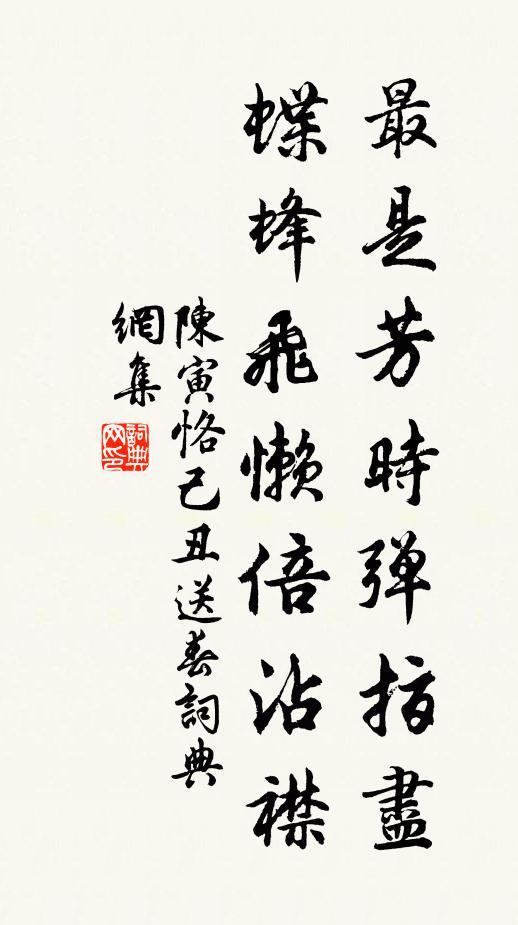 最是芳時弹指盡
蝶蜂飛懒倍沾襟
陳寅恪己丑送春詞典
網集
詞典
网印